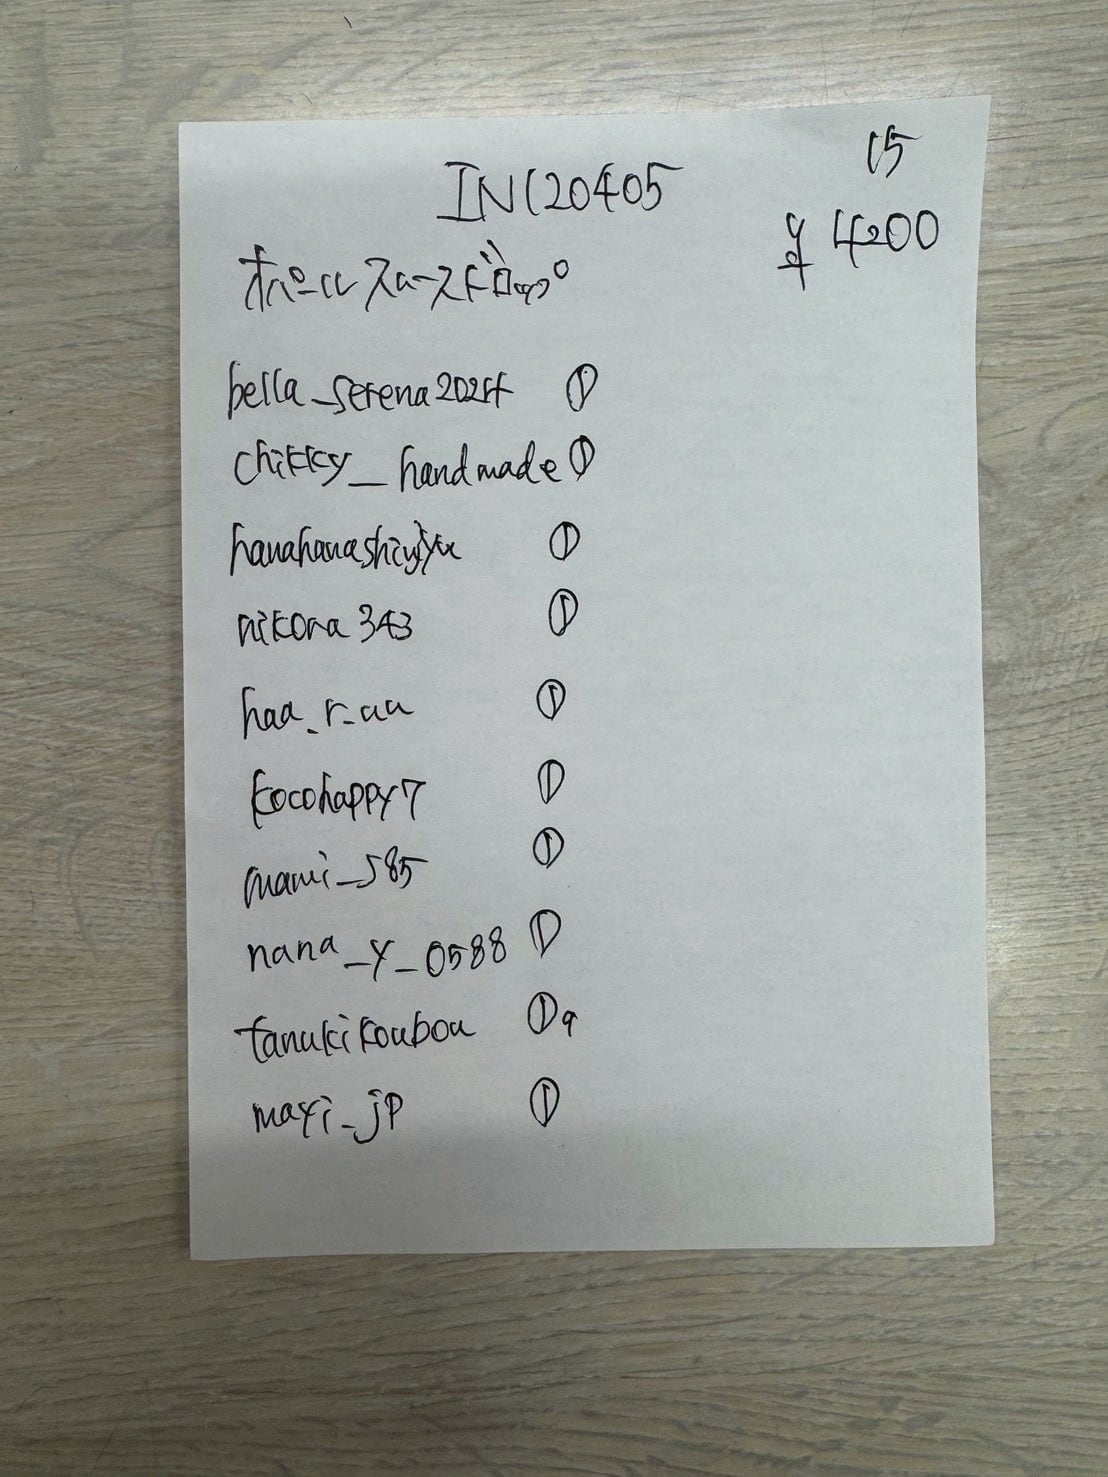 15
IN120405
¥4200
オパールスムースドロップ
bella_serena2024 ①
chikky_handmade ①
hanahanashinjyu ①
nikora343 ①
haa_r_aa ①
kocohappy7 ①
mami_585 ①
nana_y_0588 ①
tanukikoubou ①
mayi_jp ①